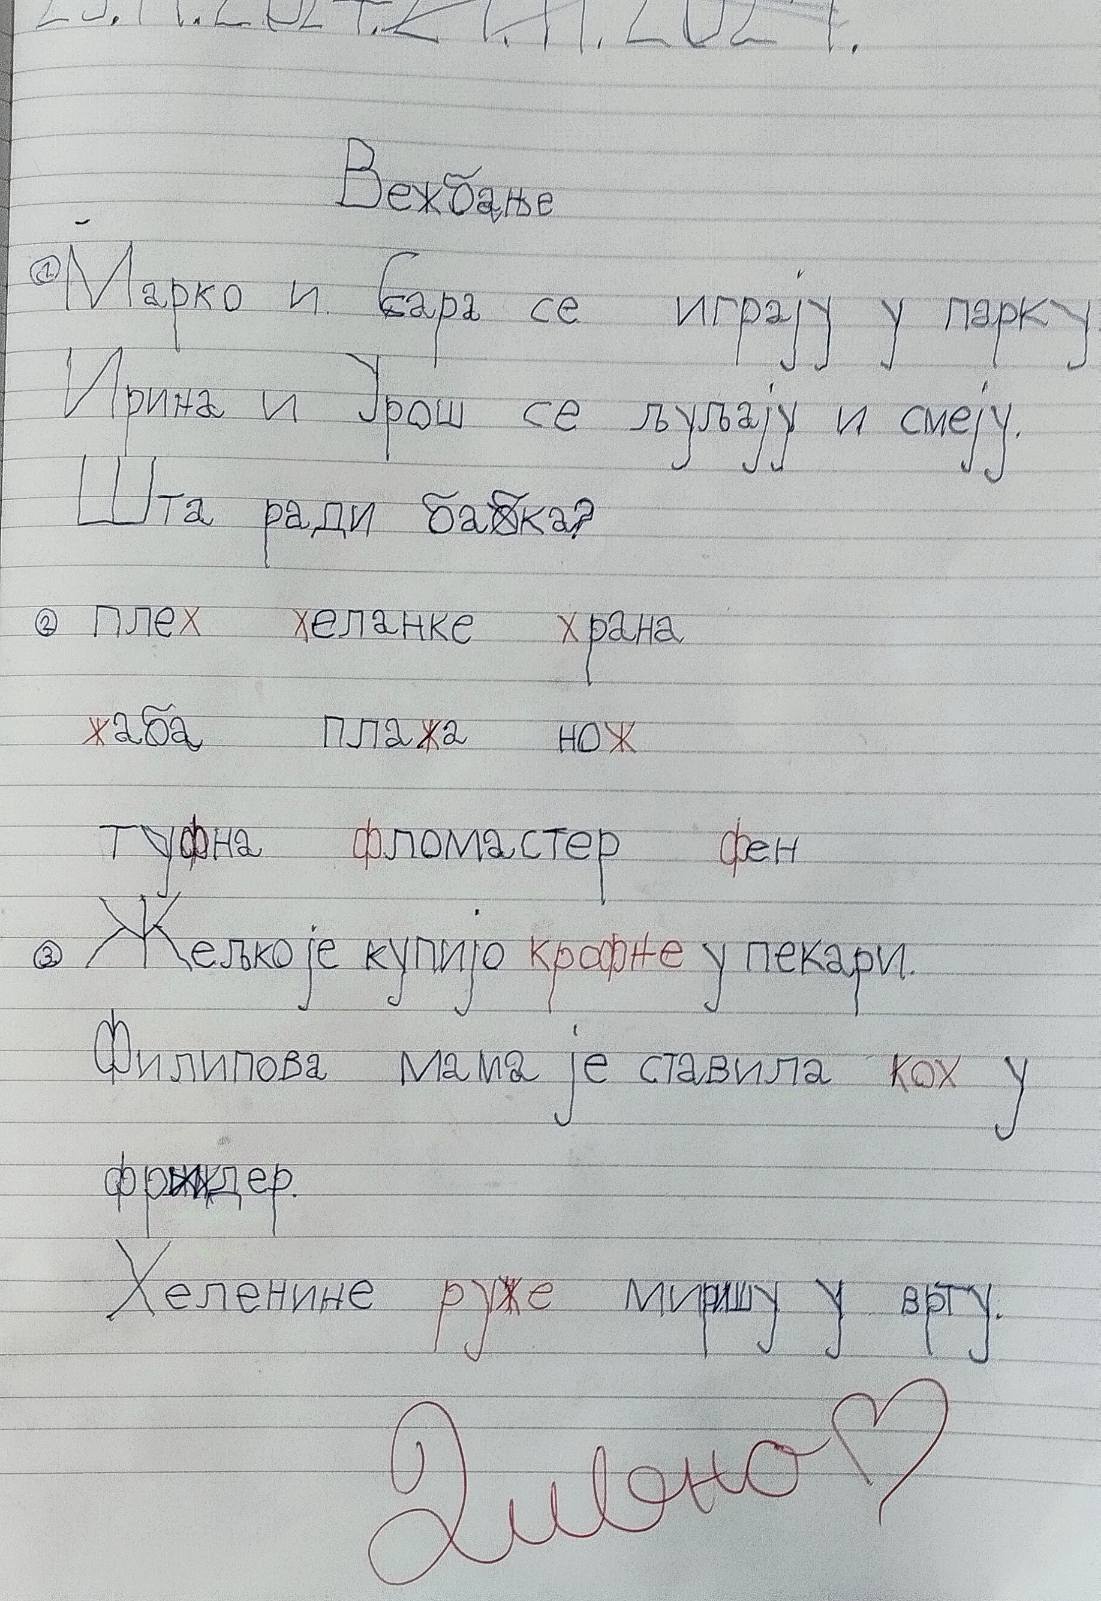 Вежбање
① Марко и Сара се играју у парку
Ирина и Урош се љуљају и смеју.
Шта ради бабка?
② плех хеланке храна
жаба плажа нож
туфна фломастер фен
③ Жељко је купијо крофне у пекари.
Филипова мама је ставила кох у
фрждер.
Хеленине руже миришу у врту.
Дивно